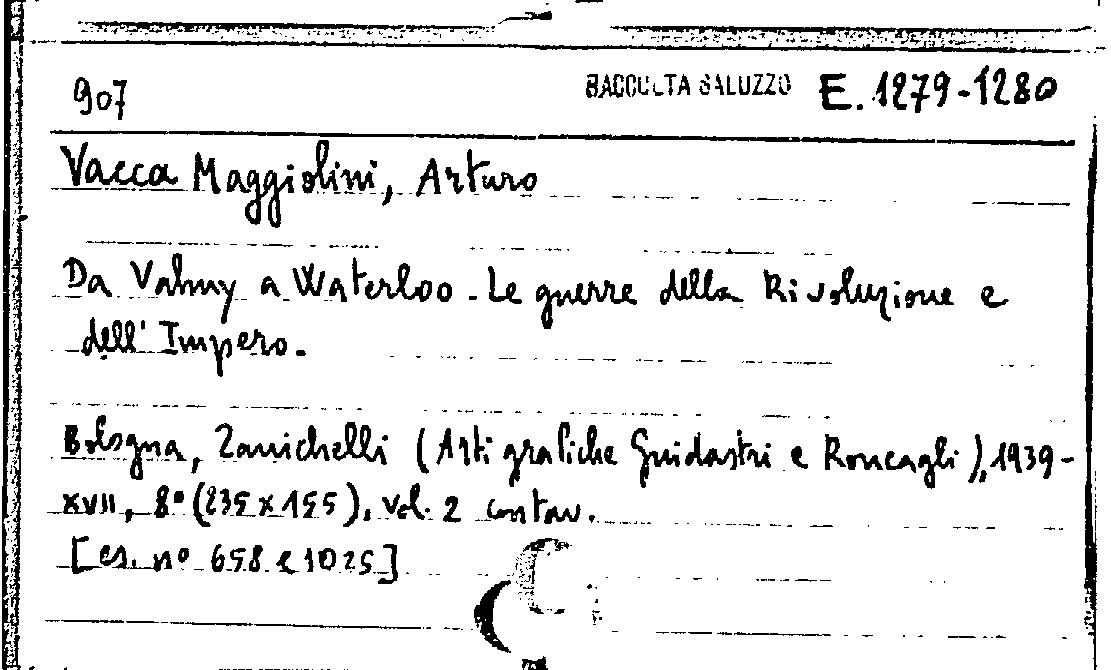 907 RACCOLTA SALUZZO E. 1279-1280
Vacca Maggiolini, Arturo
Da Valmy a Waterloo - Le guerre della Rivoluzione e
dell' Impero.
Bologna, Zanichelli (Arti grafiche Guidastri e Roncagli), 1939-
XVII, 8° (235 x 155), vol. 2 con tav.
[es. n° 658 e 1025]